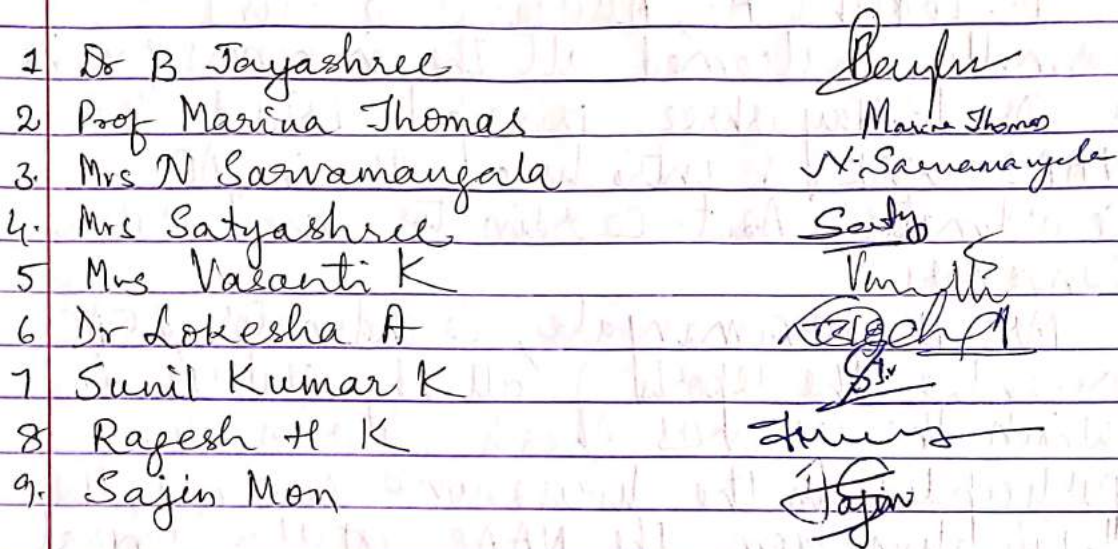 1 Dr B Jayashree
2 Prof Marina Thomas Marina Thomas
3. Mrs N Sarvamangala N. Sarvamangala
4. Mrs Satyashree Saty
5 Mrs Vasanti K
6 Dr Lokesha A
7 Sunil Kumar K
8 Ragesh H K
9. Sajin Mon Sajin